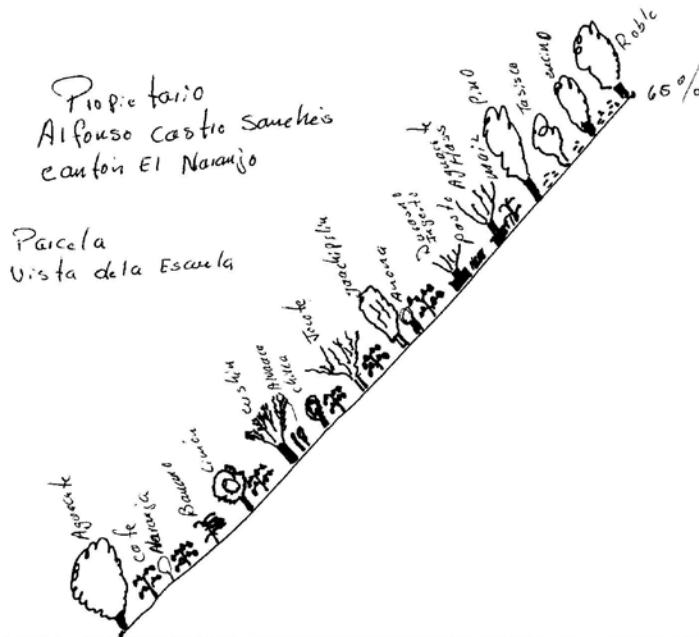 Propietario
Alfonso castro sanches
cantón El Naranjo
Parcela
Vista dela Escuela
Aguacate
cafe
Naranja
Banano
Limón
cushin
chilca
Jocote
Anona
Durasno
Ingerto
pasto
Aguacate
Hass
maiz
Pino
Tasisco
encino
Roble
65%